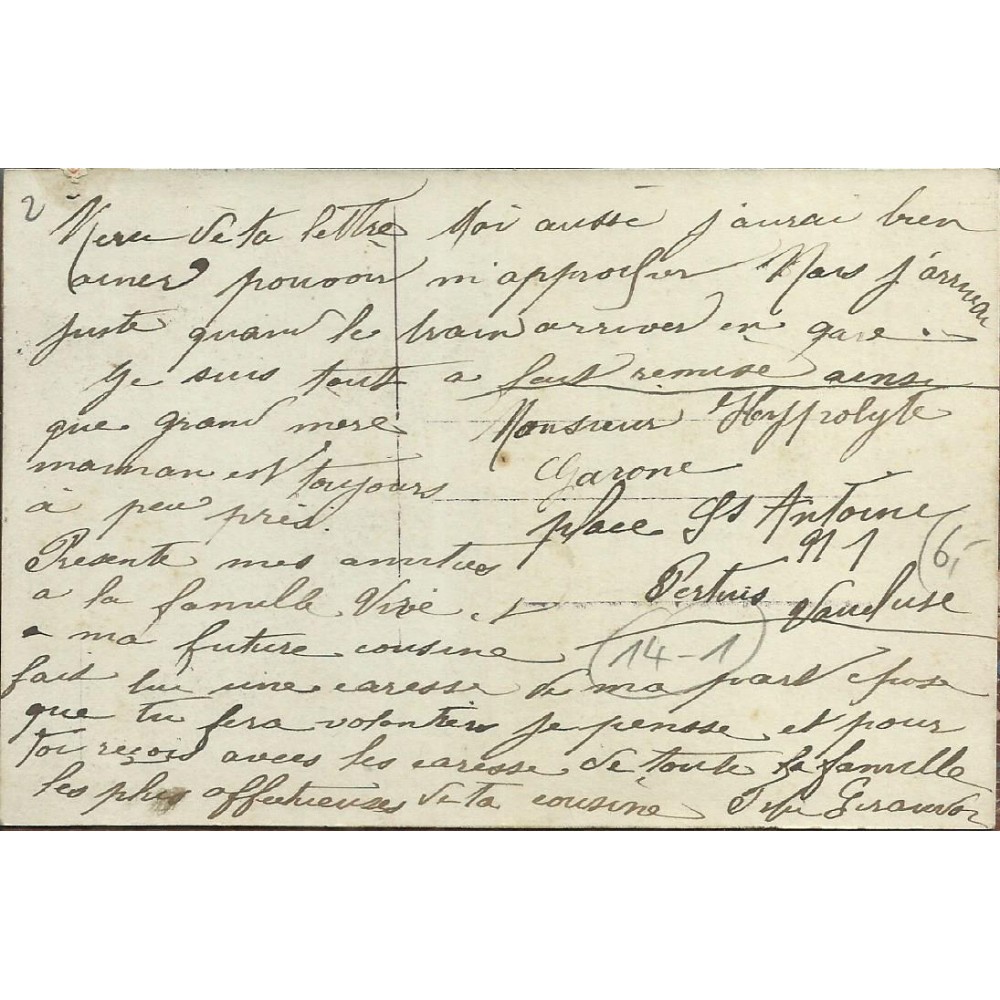 2
Merci de ta lettre Moi aussi j'aurai bien
aimer pouvoir m'approcher Mais j'arrivai
juste quand le train arriver en gare.
Je suis tout a fait remise ainsi
que grand mere
maman est toujours
à peu près.
Monsieur Hyppolyte
Garone
place St Antoine
N 1
Pertuis
Vaucluse
6,-
14-1
Presente mes amities
a la famille et
a ma future cousine
fait lui une caresse de ma part chose
que tu fera volontier je pensse et pour
toi reçois avecs les caresse de toute la famille
les plus affectueuses de ta cousine